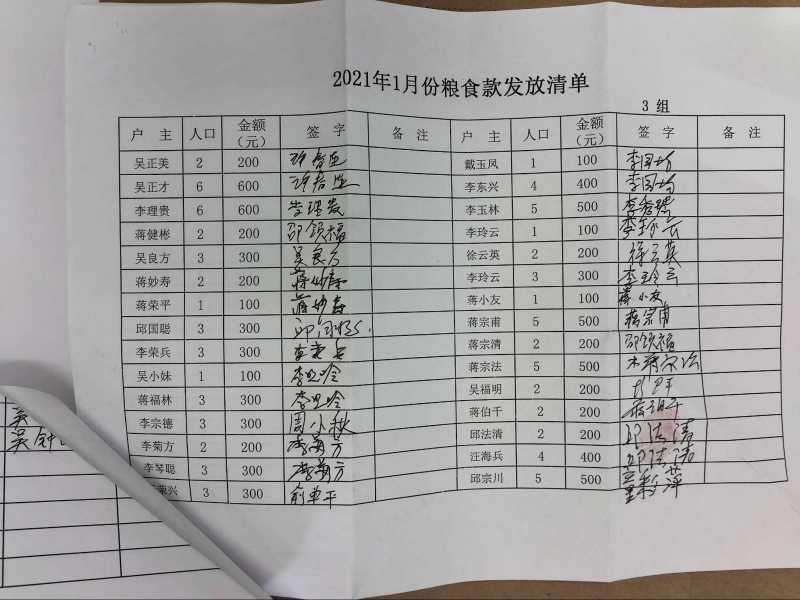 2021年1月份粮食款发放清单
3 组
户 主 人口 金额(元) 签 字 备 注 户 主 人口 金额(元) 签 字 备 注
吴正美 2 200 戴玉凤 1 100 李国均
吴正才 6 600 李东兴 4 400 李国均
李理贵 6 600 李理贵 李玉林 5 500 李秀梅
蒋健彬 2 200 邵领福 李玲云 1 100 李玲云
吴良方 3 300 吴良方 徐云英 2 200 徐云英
蒋妙寿 2 200 蒋妙寿 李玲云 3 300 李玲云
蒋荣平 1 100 蒋妙寿 蒋小友 1 100 蒋小友
邱国聪 3 300 蒋宗甫 5 500 蒋宗甫
李荣兵 3 300 李荣兵 蒋宗清 2 200 邵领福
吴小妹 1 100 蒋宗法 5 500
蒋福林 3 300 吴福明 2 200
李宗德 3 300 周小秋 蒋伯千 2 200
李菊方 2 200 李菊方 邱法清 2 200 邱法清
李琴聪 3 300 李菊方 汪海兵 4 400 邱法清
荣兴 3 300 俞单平 邱宗川 5 500